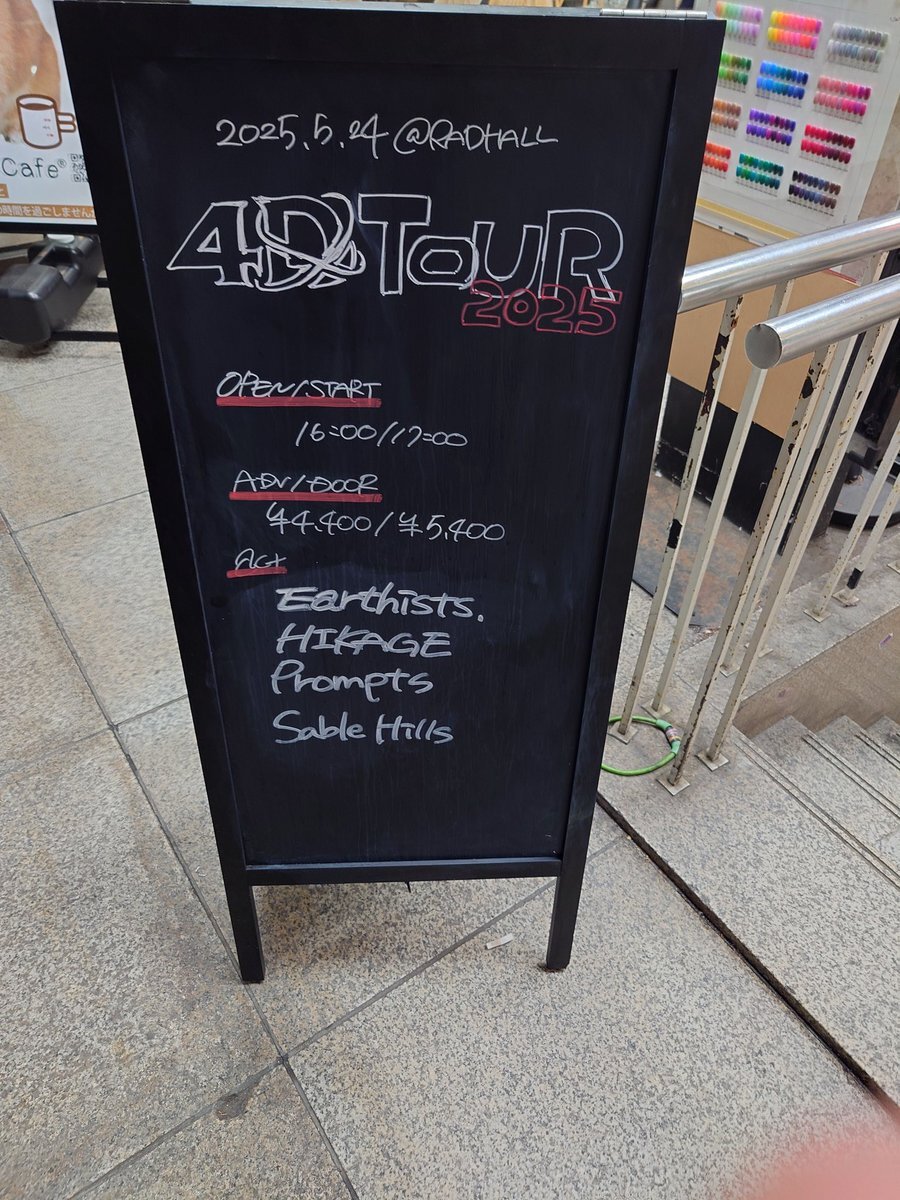 2025.5.24 @RADHALL
4DX TOUR
2025
OPEN/START
16:00/17:00
ADV/DOOR
¥4.400/¥5,400
Act
Earthists.
HIKAGE
Prompts
Sable Hills
Cafe®
の時間を過ごしませんか